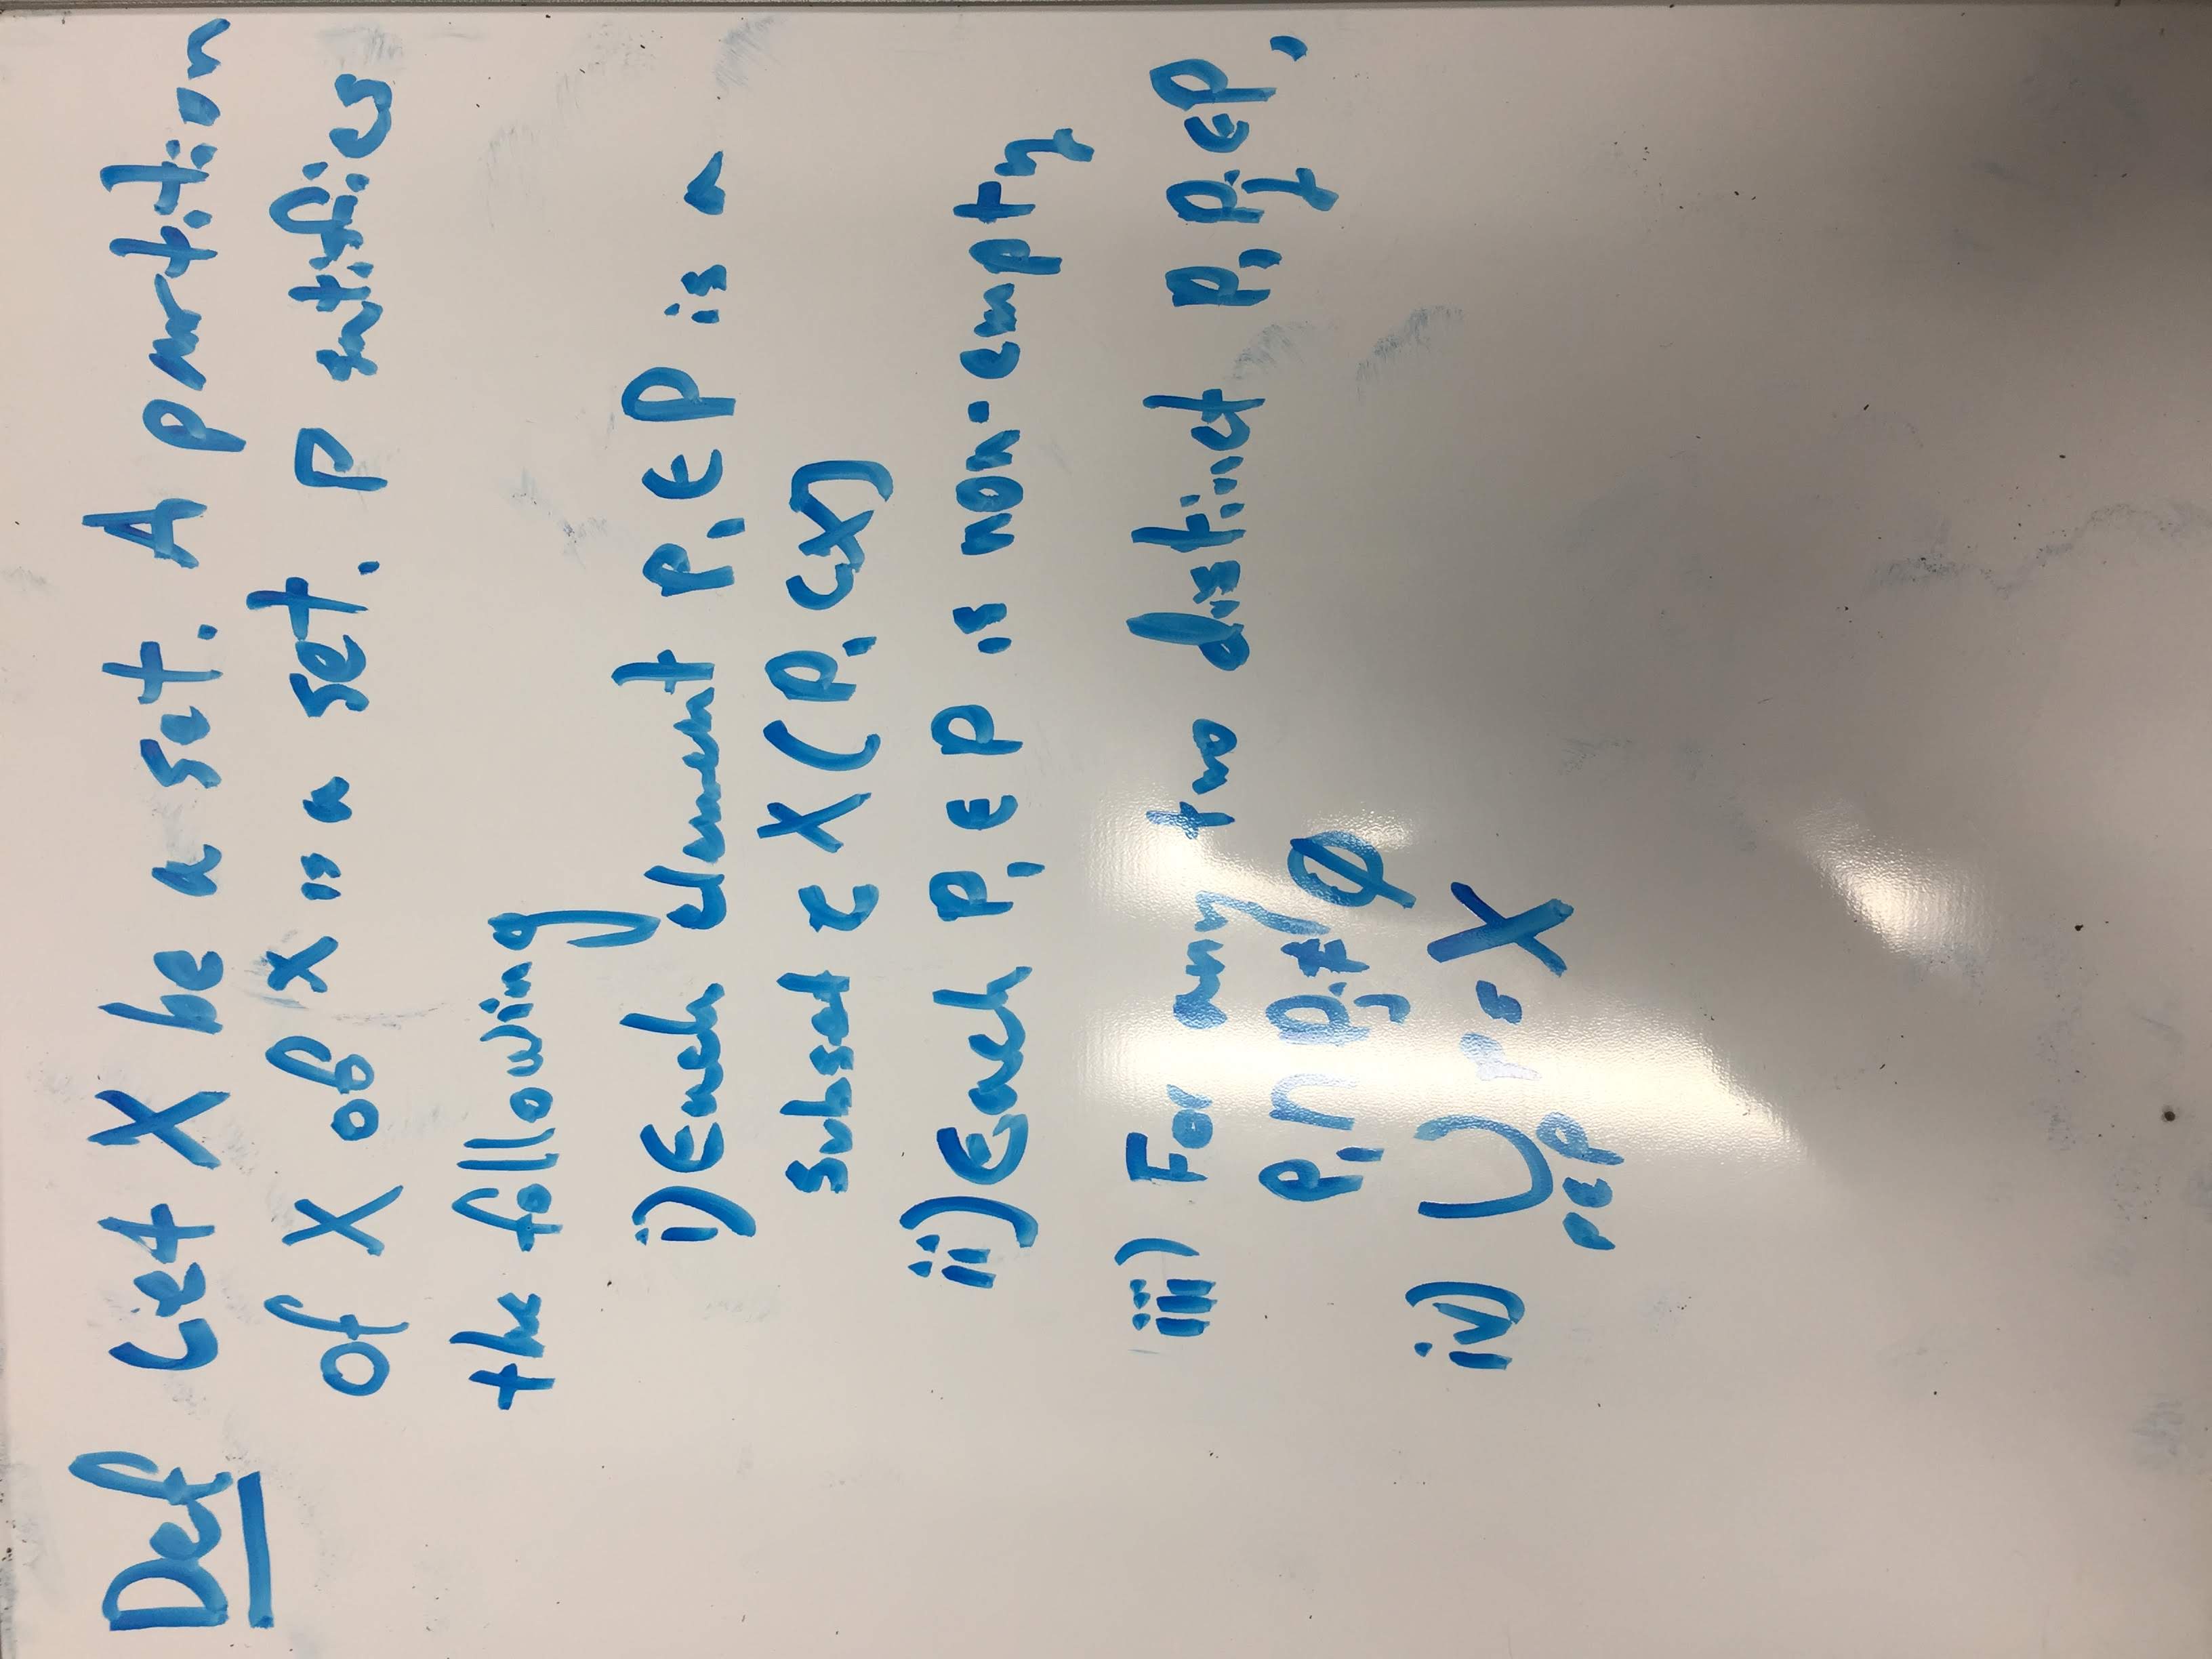 Def Let X be a set. A partition
of X of X is a set. P satisfies
the following
i) Each element P₁ ∈ P is a
subset ⊂ X (P₁ ⊂ X)
ii) Each P₁ ∈ P is non-empty
iii) For any two distinct P₁ Pⱼ ∈ P,
P₁ ∩ Pⱼ ≠ ∅
iv) ⋃ P = X
P ∈ P